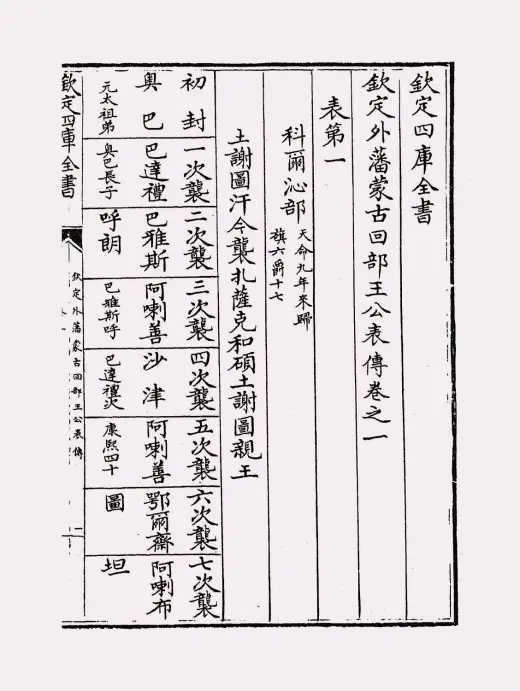 欽定四庫全書
欽定外藩蒙古回部王公表傳卷之一
表第一
科爾沁部
天命九年來歸
旗六爵十七
土謝圖汗今襲扎薩克和碩土謝圖親王
初封
一次襲
二次襲
三次襲
四次襲
五次襲
六次襲
七次襲
奥巴
巴達禮
巴雅斯
阿喇善
沙津
阿喇善
鄂爾齋
阿喇布
元太祖弟
奥巴長子
呼朗
巴雅斯呼
巴達禮次
康熙四十
圖
坦
欽定四庫全書
欽定外藩蒙古回部王公表傳
卷一
一